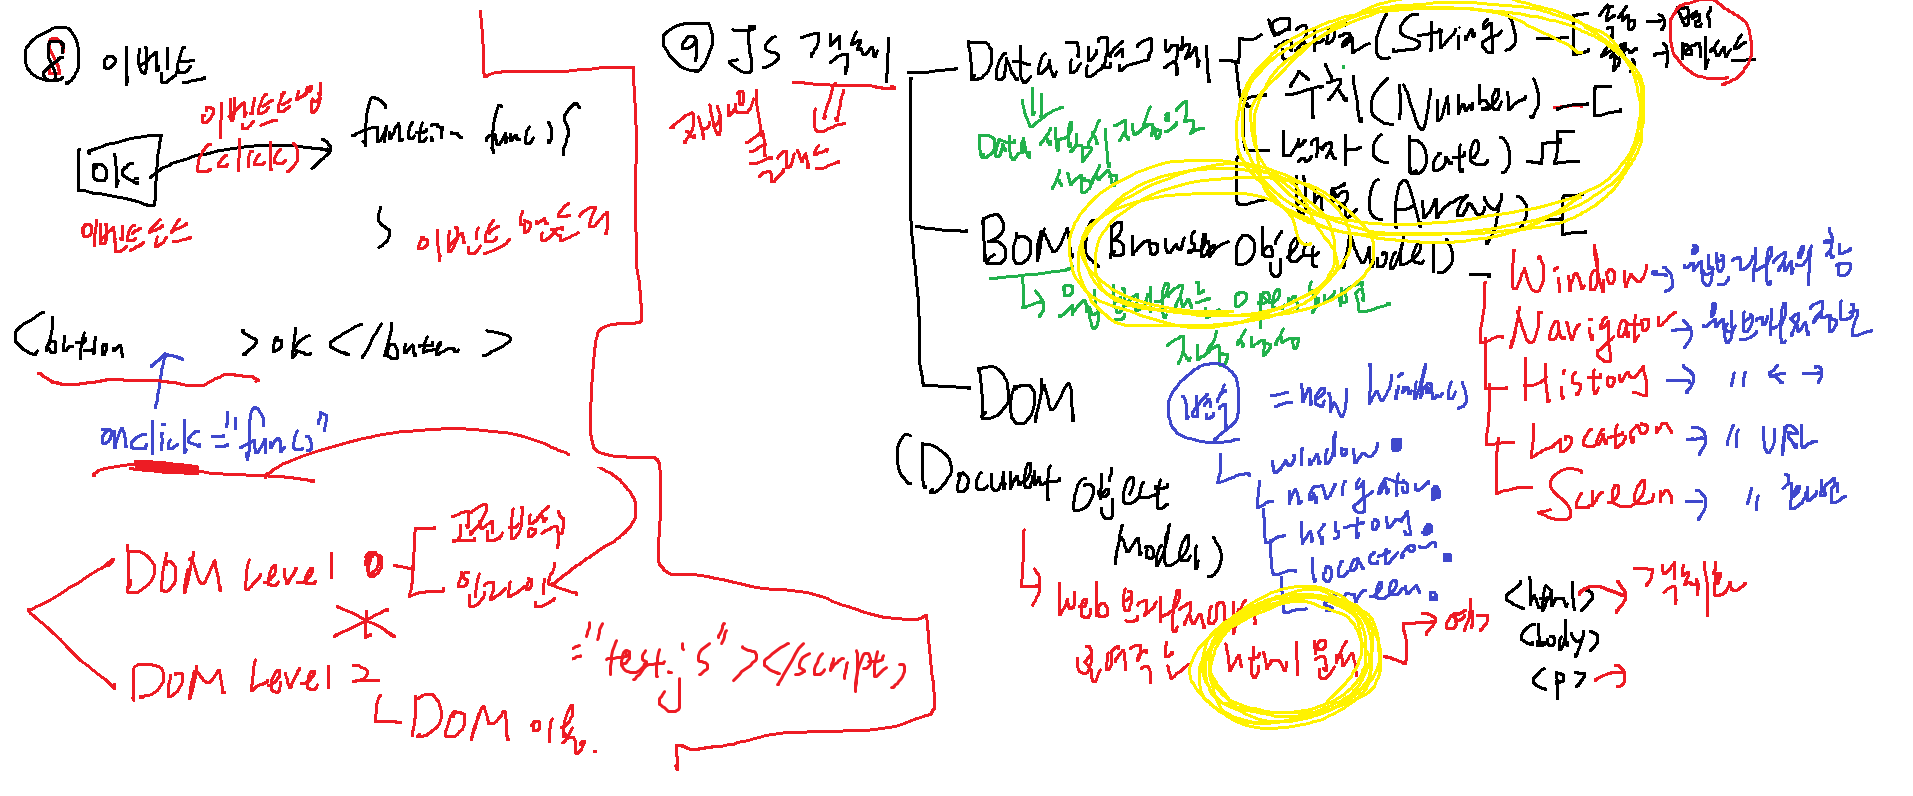 ⑧ 이벤트
이벤트타입
(click)
ok
function func(){
}
이벤트소스
이벤트 핸들러
<button >ok</button>
onclick="func()"
DOM Level 0
고전방식
인라인
DOM Level 2
DOM 이용.
="test.js"></script>
⑨ JS 객체
자바의
클래스
Data 관련 객체
Data 사용시 자동으로
생성
문자열(String)
속성 → 변수
동작 → 메서드
수치(Number)
날짜(Date)
배열(Array)
BOM(Browser Object Model)
웹브라우저는 open하면
자동생성
Window → 웹브라우저의 창
Navigator → 웹브라우저정보
History → " ← →
Location → " URL
Screen → " 화면
변수 = new Window()
window.
navigator.
history.
location.
screen.
DOM
(Document Object
Model)
Web 브라우저에서
보여주는 html문서
예> <html> → 객체화
<body>
<p> →